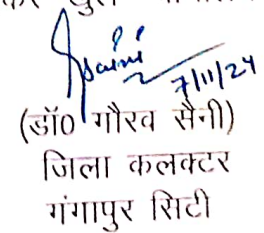 Saini
7/11/24
(डॉ0 गौरव सैनी)
जिला कलक्टर
गंगापुर सिटी